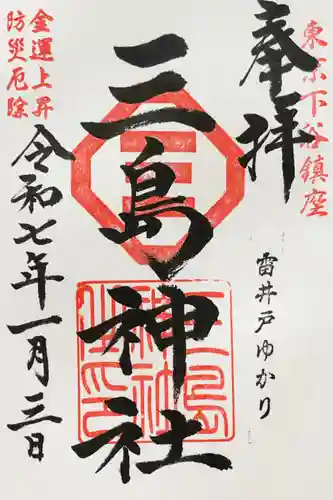 東京下谷鎮座
奉拝
雷井戸ゆかり
三島神社
三
三島神社之印
金運上昇
防災厄除
令和七年一月三日